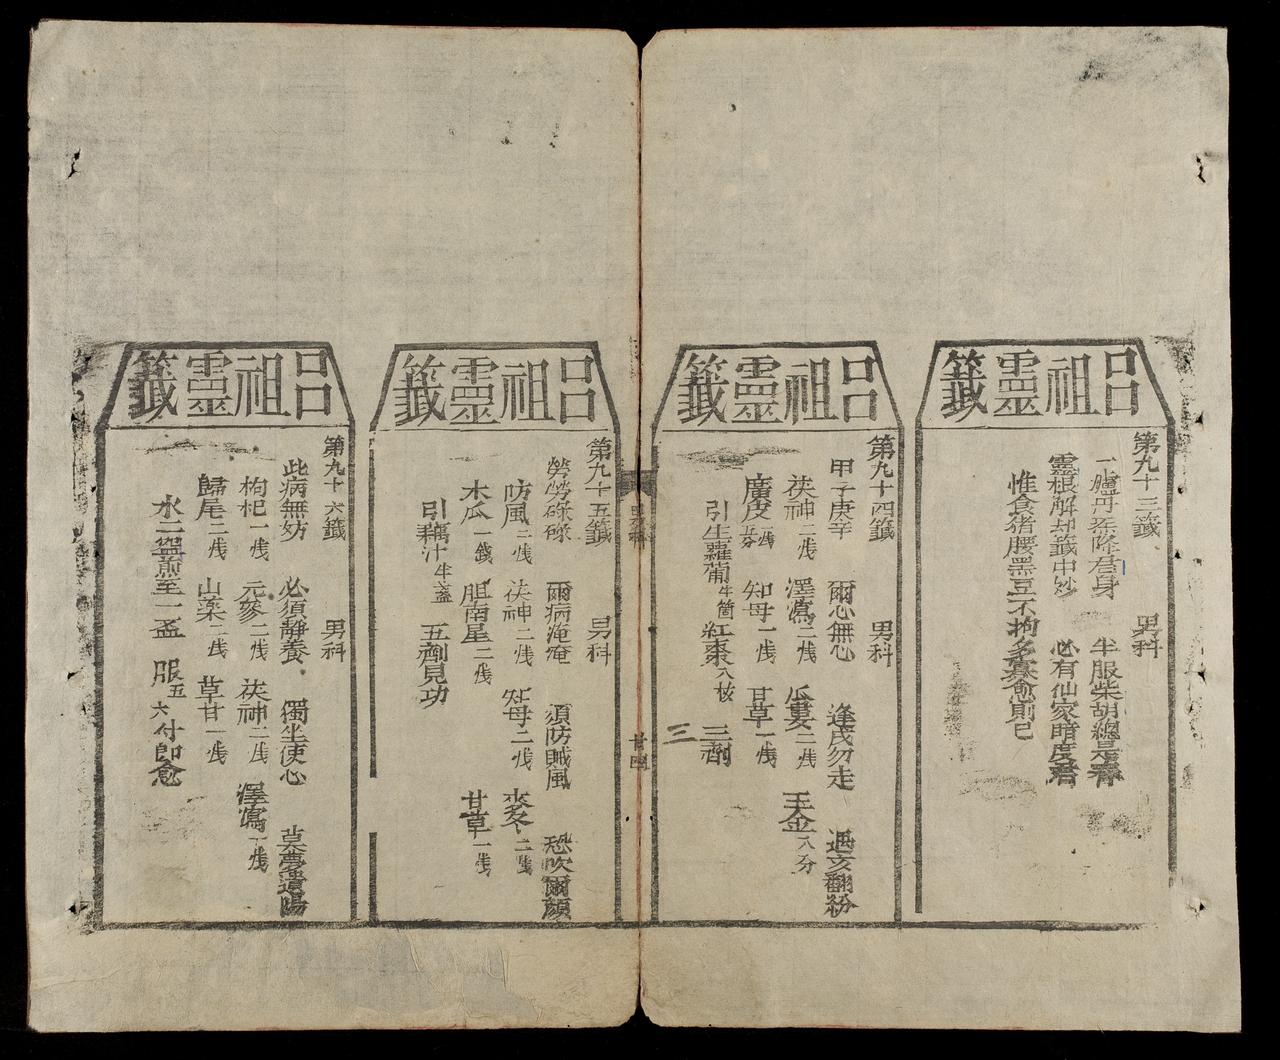 呂祖靈籤
第九十三籤 男科
一爐丹藥降君身 半服柴胡總是
靈根解却籤中妙 必有仙家暗度君
惟食猪腰黑豆不拘多寡愈則已
呂祖靈籤
第九十四籤 男科
甲子庚辛 爾心無心 逢戌勿走 遇亥翻粉
茯神二戋 澤瀉二戋 瓜蔞二戋 玉金八分
廣皮一戋五分 知母一戋 甘草一戋
引生蘿蔔半箇 紅棗八枚 三劑
三
男科
廿四
呂祖靈籤
第九十五籤 男科
勞勞碌碌 爾病淹淹 須防賊風 恐吹爾顔
防風二戋 茯神二戋 知母二戋 麥冬二戋
木瓜一錢 胆南星二戋 甘草一戋
引藕汁半盞 五劑見功
呂祖靈籤
第九十六籤 男科
此病無妨 必須靜養 獨坐使心 莫夢遺陽
枸杞一戋 元參二戋 茯神二戋 澤瀉一戋
歸尾二戋 山藥二戋 草甘一戋
水二盌煎至一盃 服五六付即愈